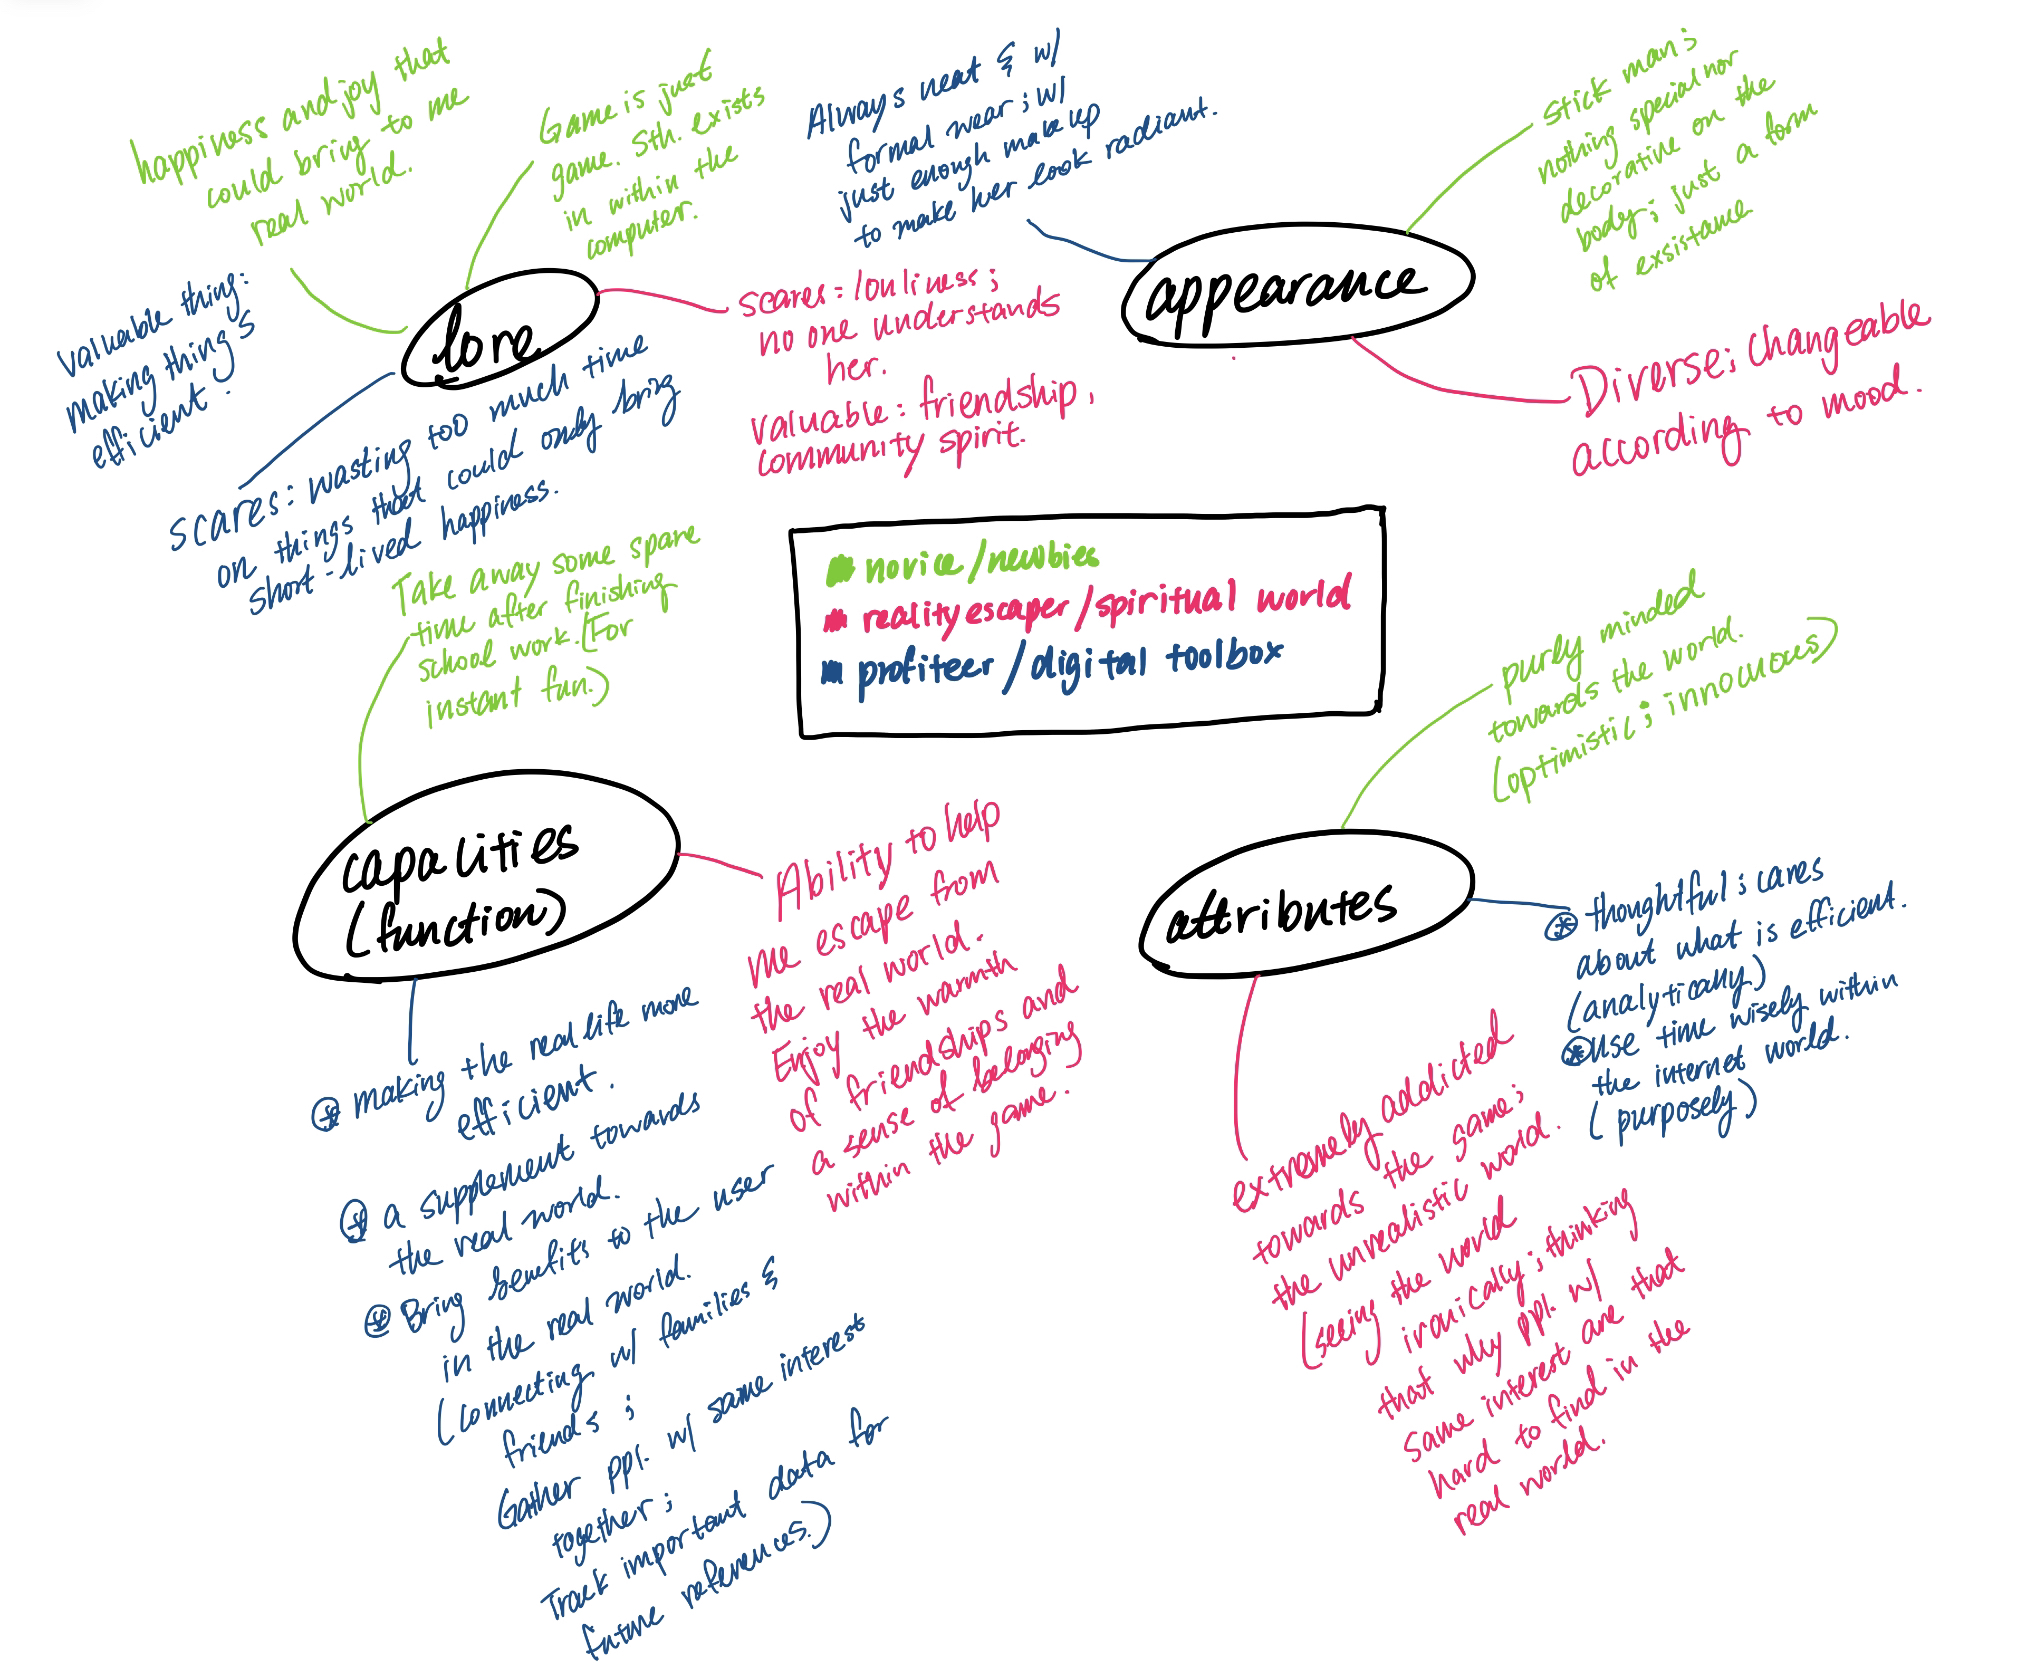 happiness and joy that
could bring to me
real world.
Game is just
game. Sth. exists
in within the
computer.
lore
Valuable thing:
making things
efficient.
scares: wasting too much time
on things that could only bring
short-lived happiness.
scares: louliness;
no one understands
her.
valuable: friendship,
community spirit.
Always neat & w/
formal wear; w/
just enough makeup
to make her look radiant.
appearance
stick man;
nothing special nor
decorative on the
body; just a form
of exsistance
Diverse; changeable
according to mood.
novice/newbies
reality escaper/spiritual world
profiteer/digital toolbox
Take away some spare
time after finishing
school work. (For
instant fun.)
capalities
(function)
Ability to help
me escape from
the real world.
Enjoy the warmth
of friendships and
a sense of belonging
within the game.
* making the real life more
efficient.
* a supplement towards
the real world.
* Bring benefits to the user
in the real world.
(connecting w/ families &
friends;
Gather ppl. w/ same interest
together;
Track important data for
future references.)
purly minded
towards the world.
(optimistic; innocuous)
attributes
* thoughtful; cares
about what is efficient.
(analytically)
* use time wisely within
the internet world.
(purposely)
extremely addicted
towards the game;
the unrealistic world.
(seeing the world
ironically; thinking
that why ppl. w/
same interest are that
hard to find in the
real world.